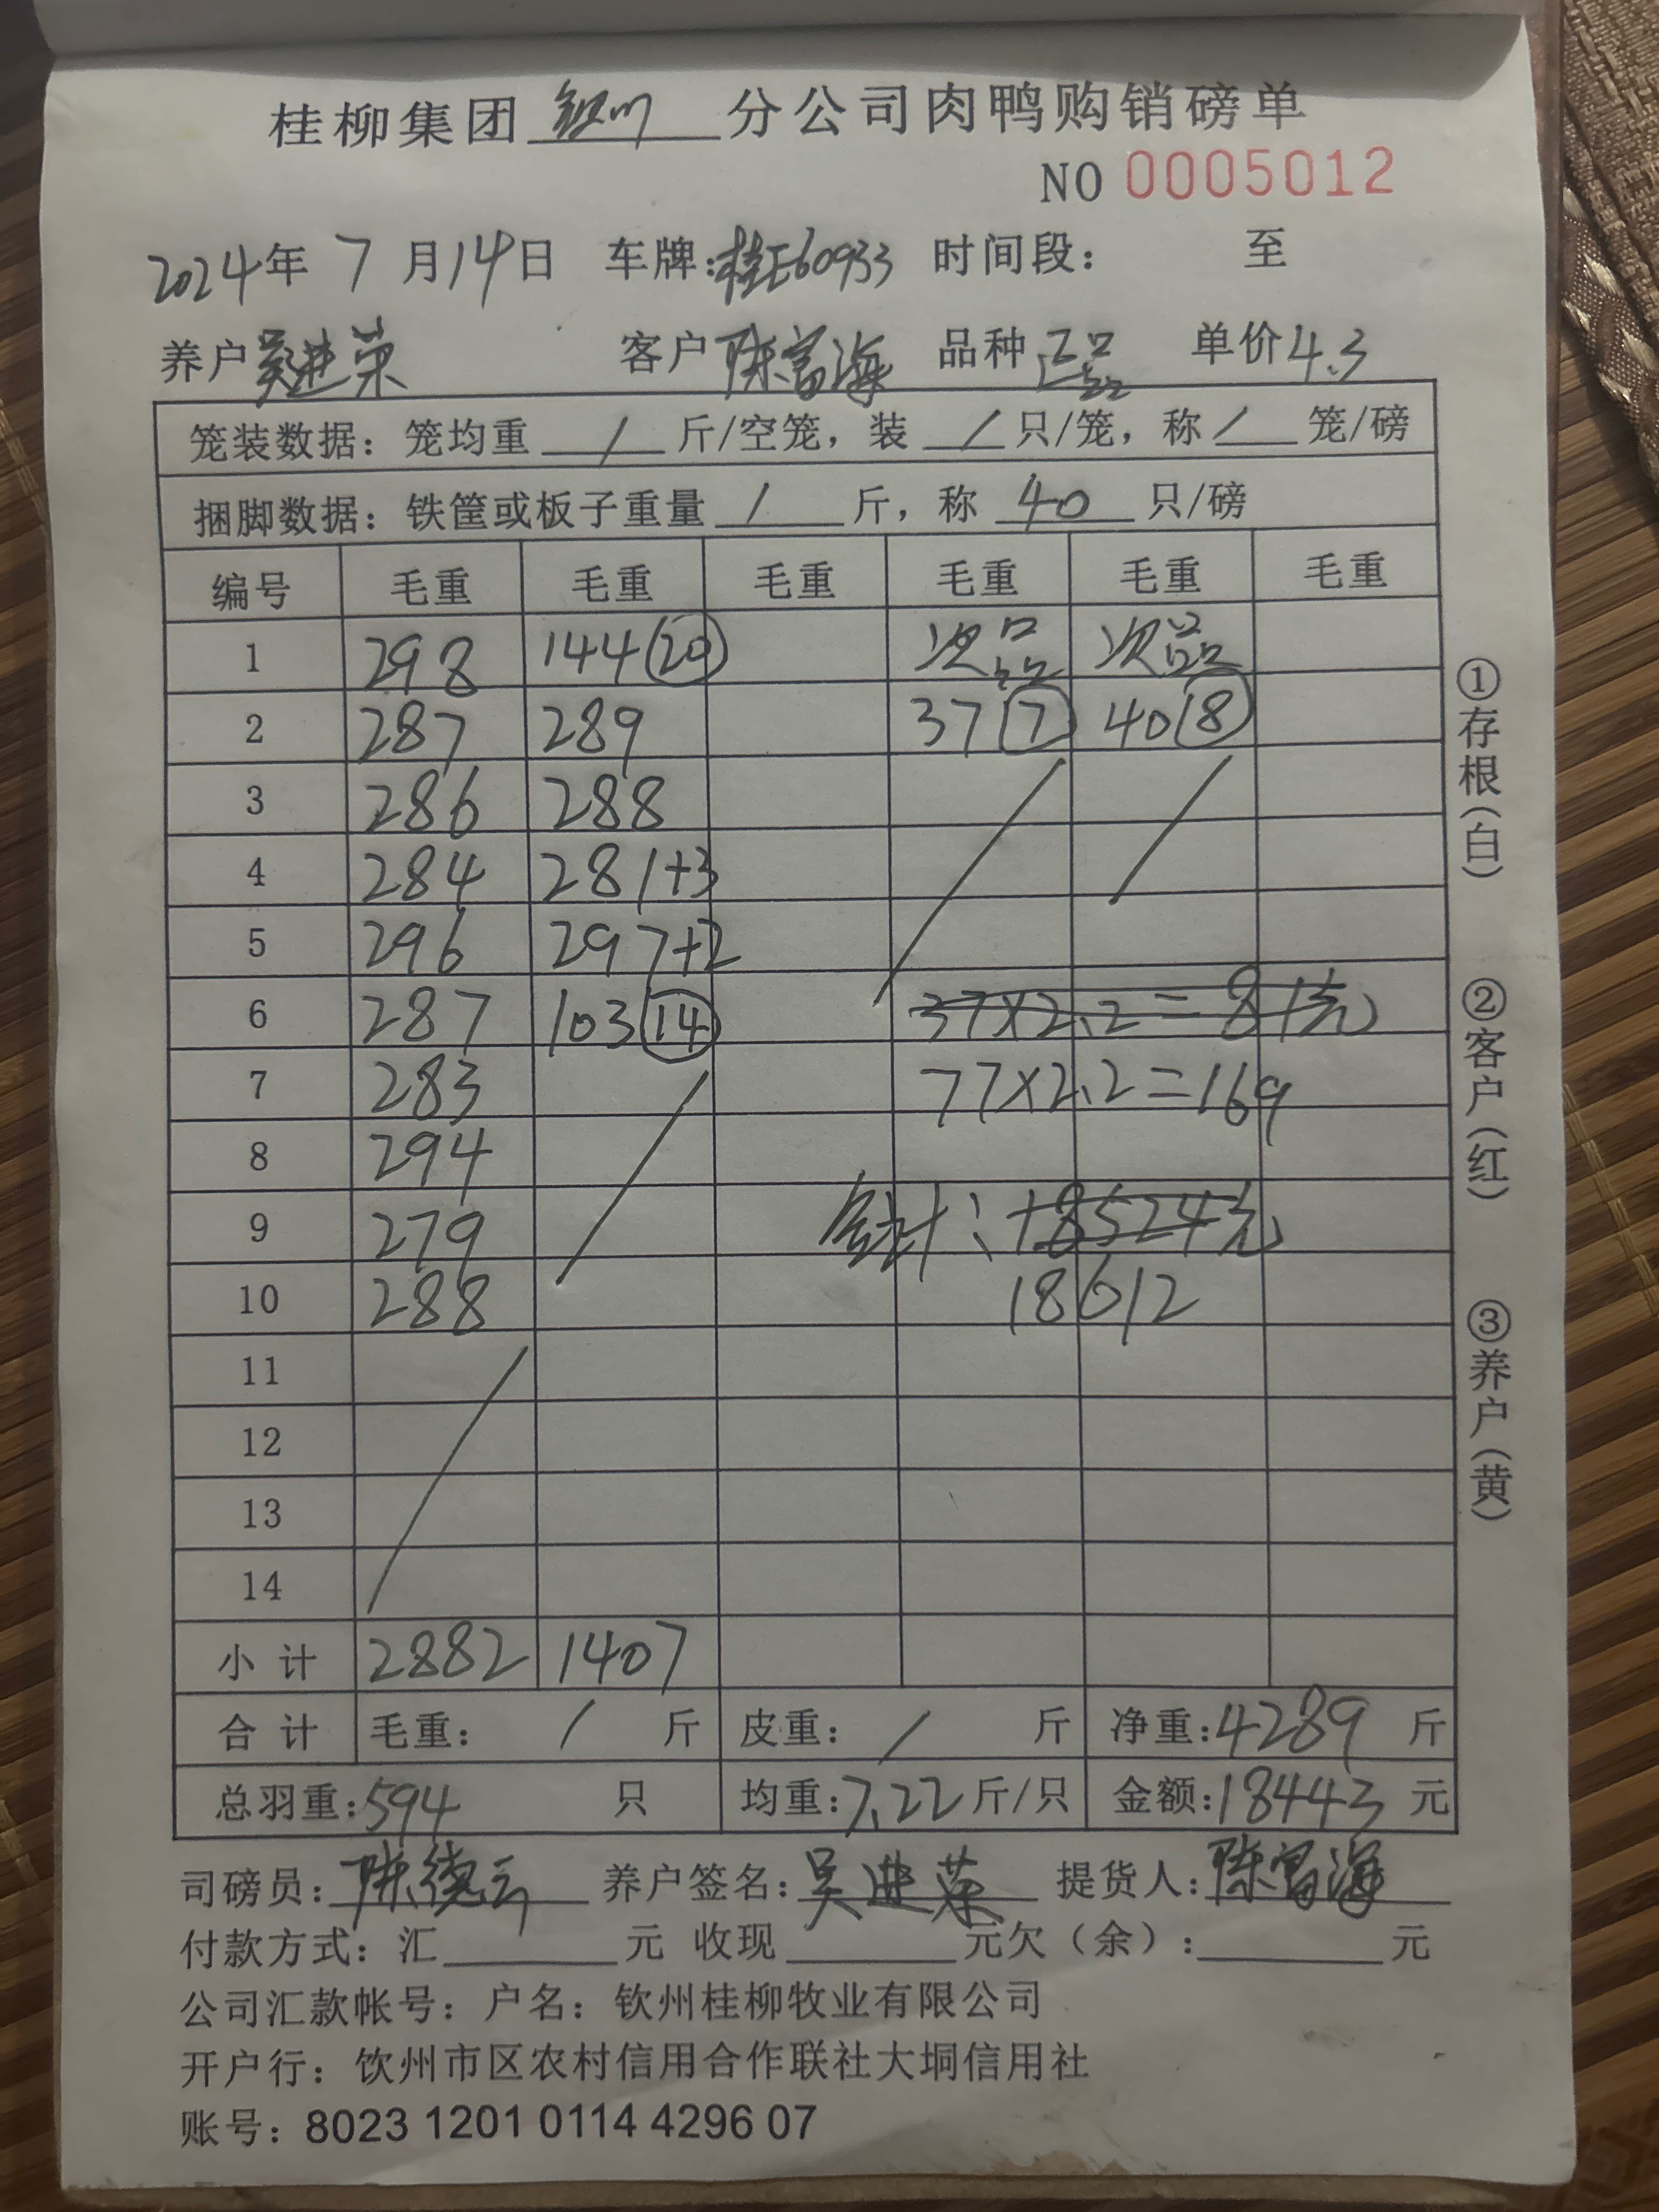 桂柳集团 钦州 分公司肉鸭购销磅单
NO 0005012
2024年 7 月14日 车牌:桂E60933 时间段: 至
养户 吴进荣 客户 陈富海 品种 正品 单价 4.3
笼装数据: 笼均重 / 斤/空笼, 装 / 只/笼, 称 / 笼/磅
捆脚数据: 铁筐或板子重量 / 斤, 称 40 只/磅
编号 毛重 毛重 毛重 毛重 毛重 毛重
1 298 144 (20) 次品 次品
2 287 289 37 (7) 40 (8)
3 286 288
4 284 281+3
5 296 297+2
6 287 103 (14) 37×2.2=81元
7 283 77×2.2=169
8 294
9 279 合计: 18524元
10 288 18612
11
12
13
14
小计 2882 1407
合计 毛重: / 斤 皮重: / 斤 净重: 4289 斤
总羽重: 594 只 均重: 7.22 斤/只 金额: 18443 元
司磅员: 陈德云 养户签名: 吴进荣 提货人: 陈富海
付款方式: 汇 元 收现 元欠(余): 元
公司汇款帐号: 户名: 钦州桂柳牧业有限公司
开户行: 钦州市区农村信用合作联社大垌信用社
账号: 8023 1201 0114 4296 07
①存根(白)
②客户(红)
③养户(黄)